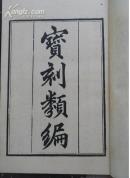 寶刻類編